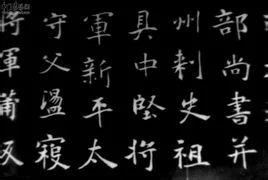 部尚書并
州刺史祖
具中堅将
軍新平太
守父盪寇
将軍蒲坂